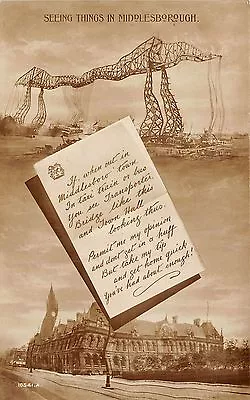 SEEING THINGS IN MIDDLESBOROUGH.
If, when out in
Middlesboro' town
In taxi train or bus
You see Transporter
Bridge like this
and Town Hall
looking thus.
Permit me my opinion
and don't get in a huff
But take my tip
and get home quick,
You've had about enough!
10541.A